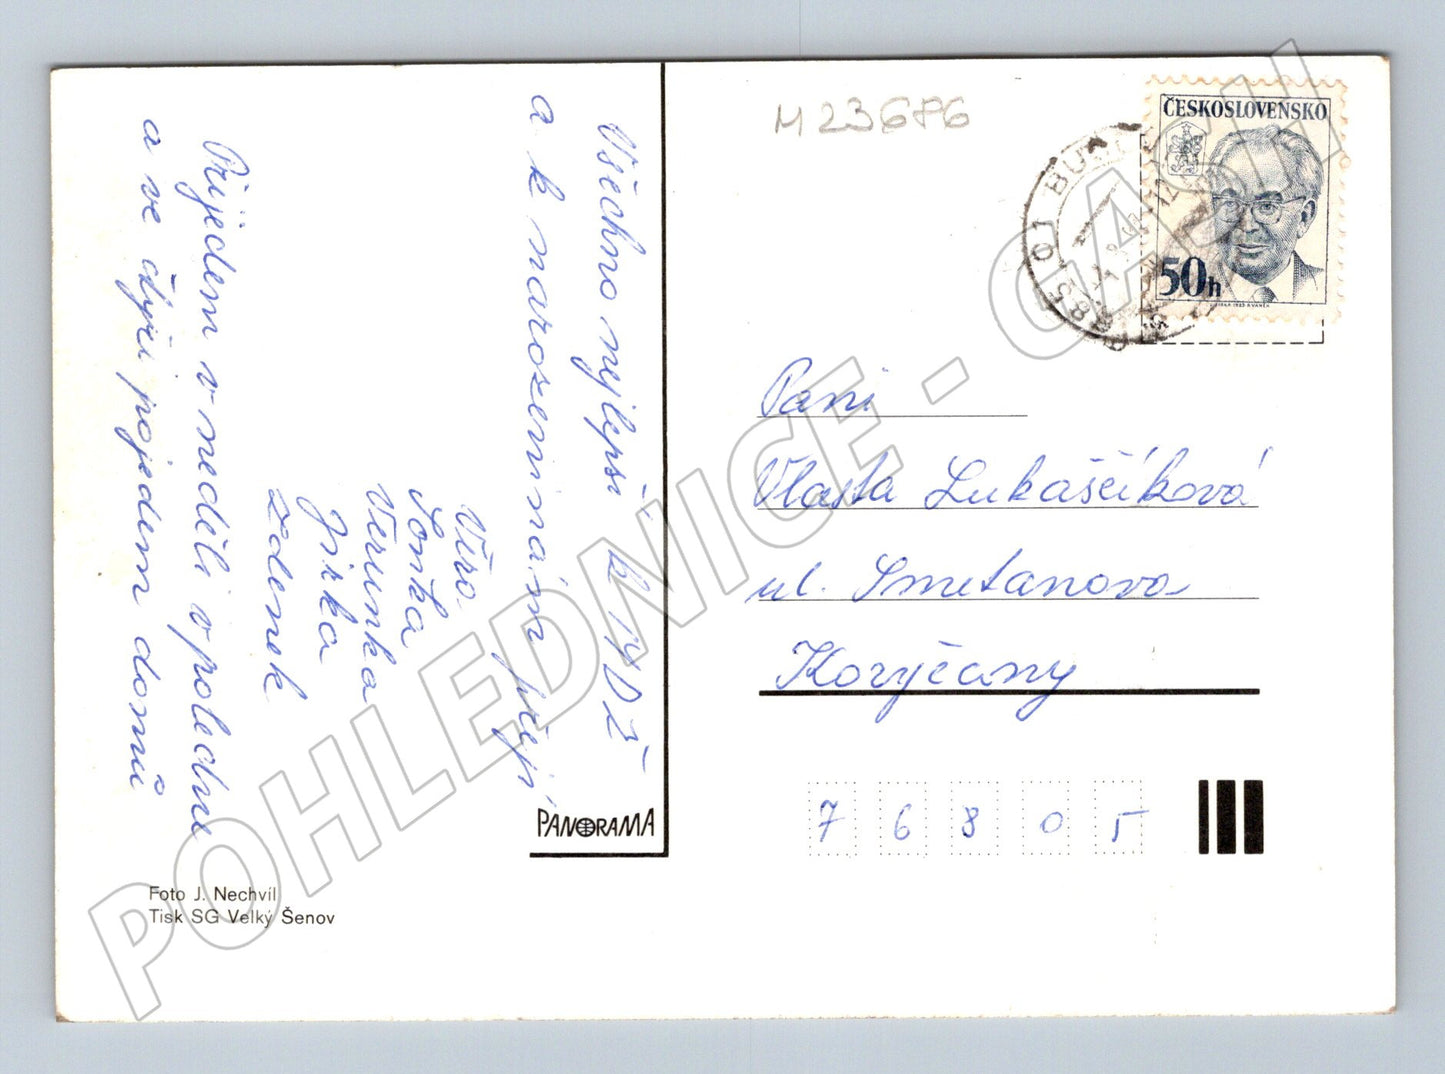 Všechno nejlepší k MDŽ
a k narozeninám přejí
Věra
Soňka
Verunka
Jirka
Zdenek
Přijedem v neděli v poledne
a ve čtyři pojedem domů
PANORAMA
Foto J. Nechvíl
Tisk SG Velký Šenov
M 23686
ČESKOSLOVENSKO
50h
Paní
Vlasta Lukaščíková
ul. Smetanova
Koryčany
7 6 8 0 5
POHLEDNICE - GASH